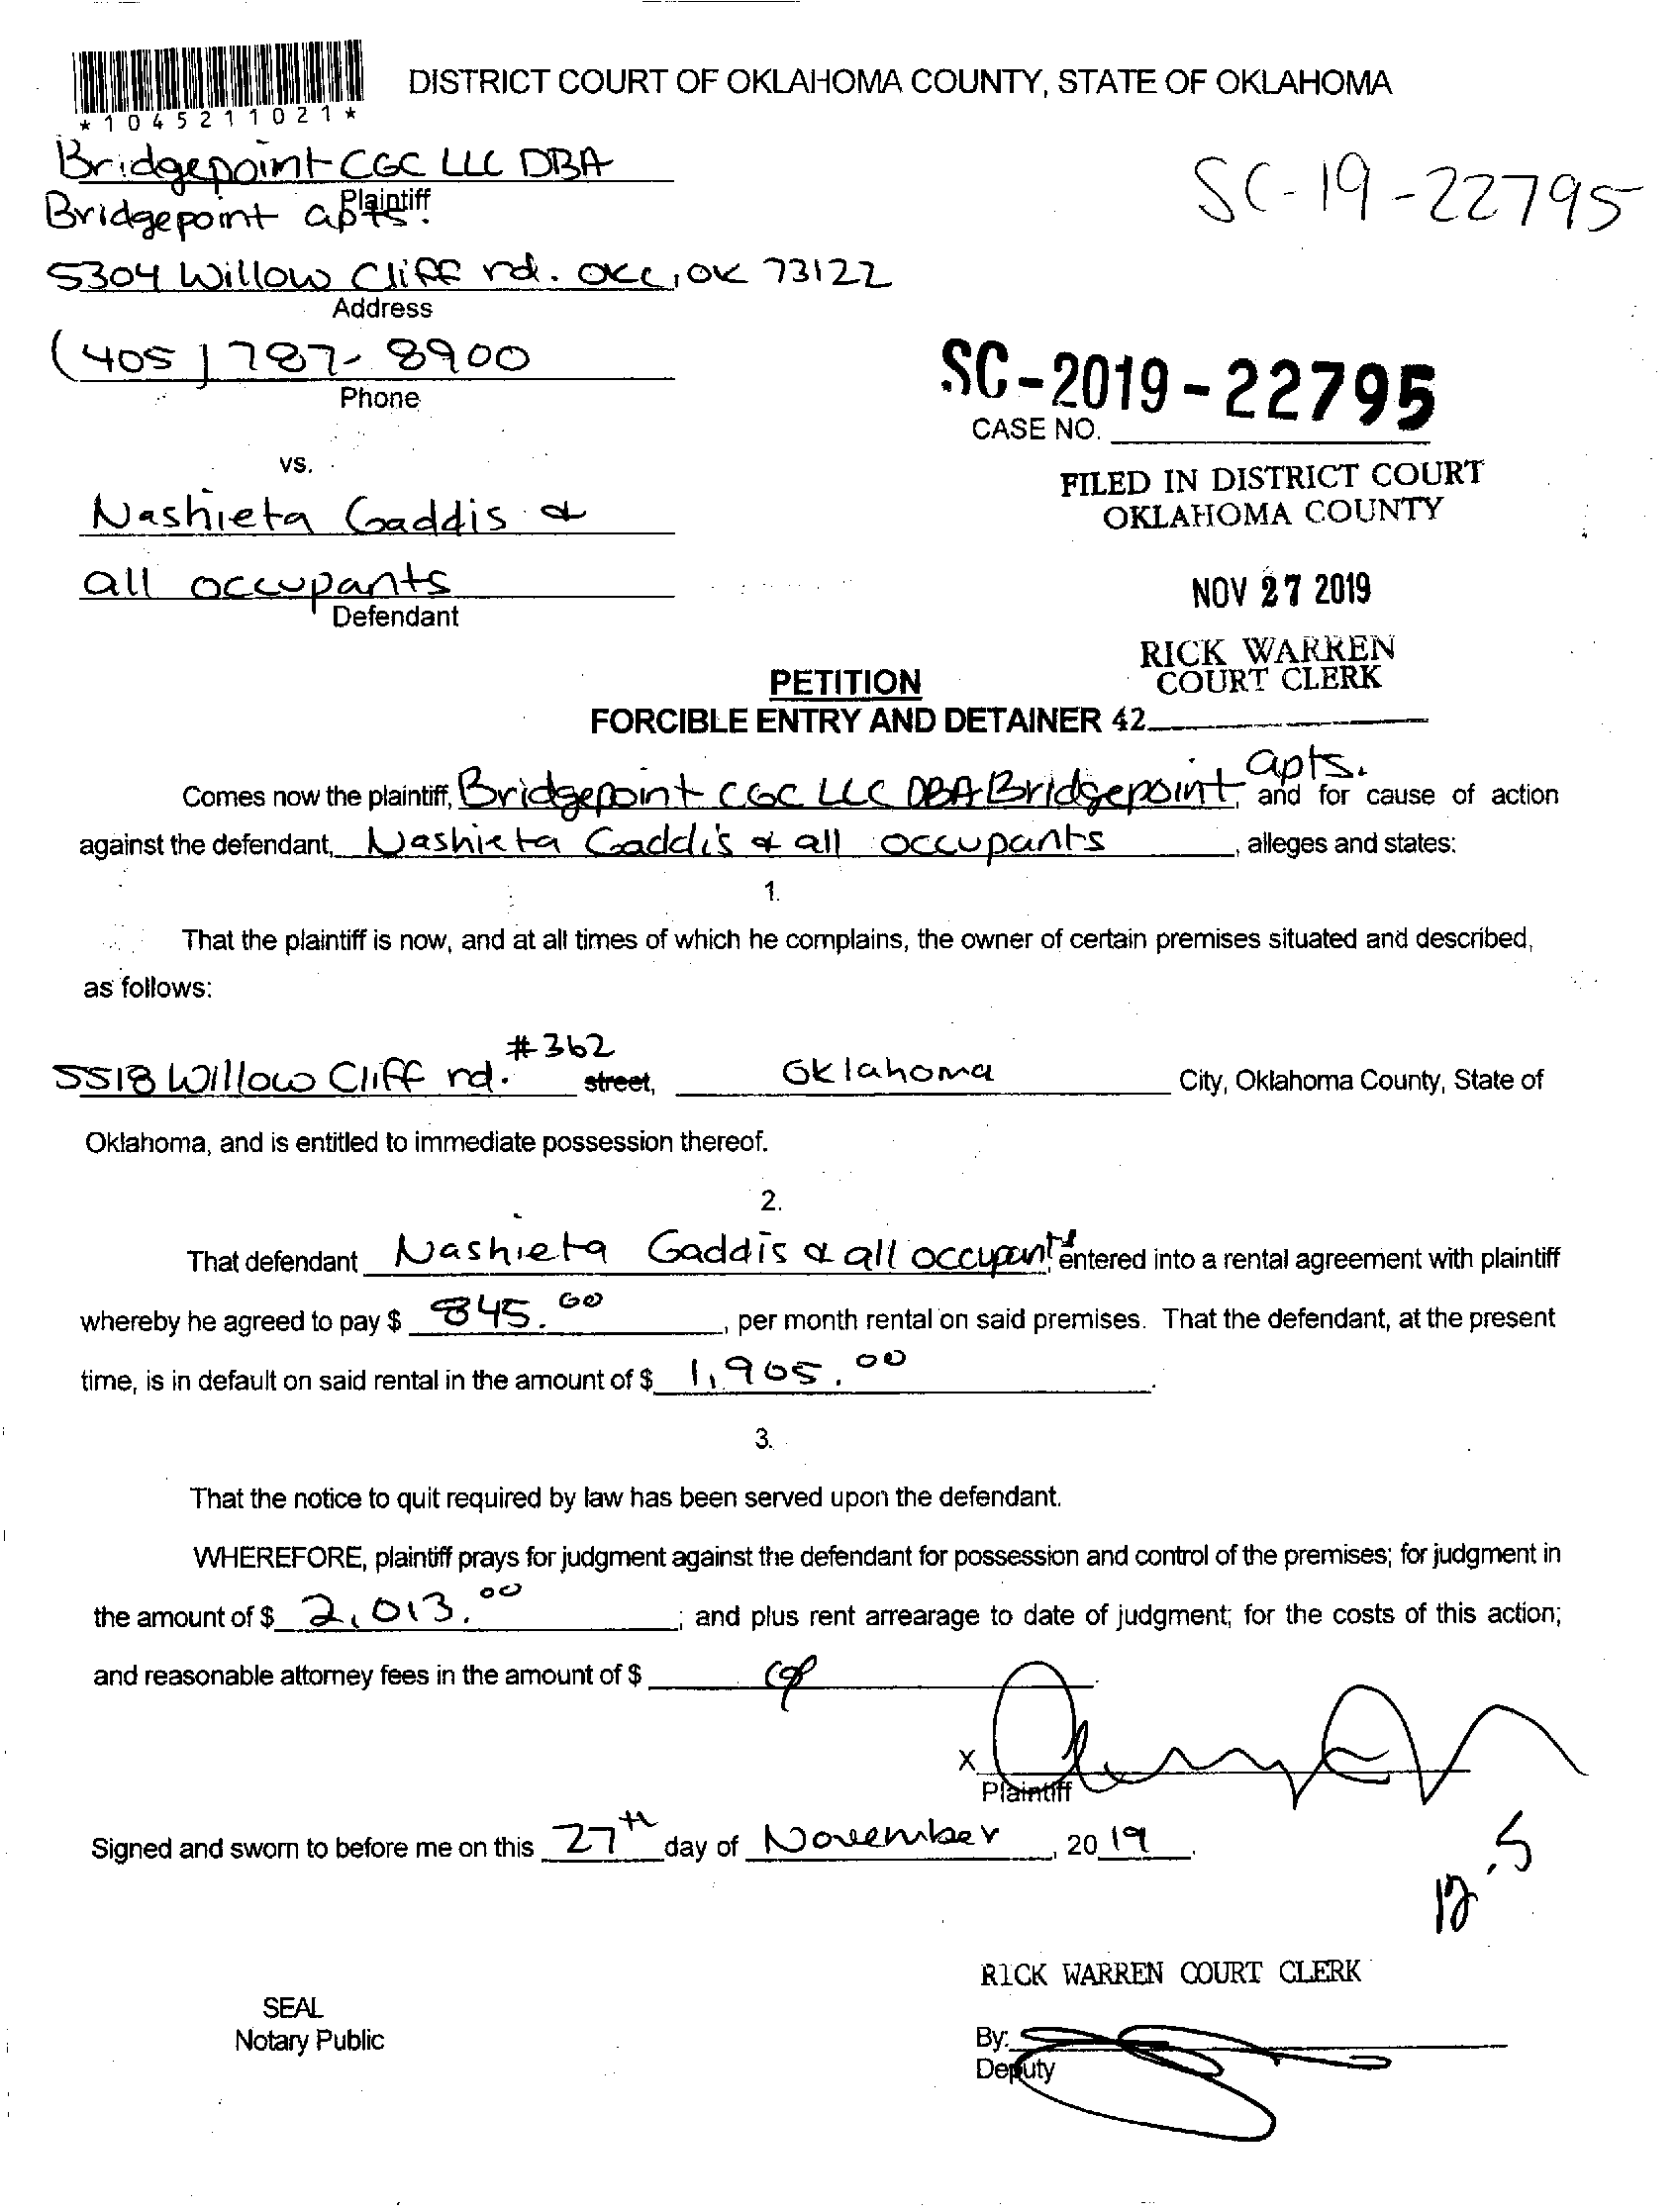 *1045211021*
DISTRICT COURT OF OKLAHOMA COUNTY, STATE OF OKLAHOMA
Bridgepoint CGC LLC DBA
Plaintiff
Bridgepoint apts.
SC-19-22795
5304 Willow Cliff rd. OKC, OK 73122
Address
(405) 787-8900
Phone
SC-2019-22795
CASE NO.
vs.
FILED IN DISTRICT COURT
OKLAHOMA COUNTY
Nashieta Gaddis &
all occupants
Defendant
NOV 27 2019
RICK WARREN
COURT CLERK
PETITION
FORCIBLE ENTRY AND DETAINER 42
Comes now the plaintiff, Bridgepoint CGC LLC DBA Bridgepoint apts., and for cause of action
against the defendant, Nashieta Gaddis & all occupants, alleges and states:
1.
That the plaintiff is now, and at all times of which he complains, the owner of certain premises situated and described,
as follows:
5518 Willow Cliff rd. #362 street, Oklahoma City, Oklahoma County, State of
Oklahoma, and is entitled to immediate possession thereof.
2.
That defendant Nashieta Gaddis & all occupants, entered into a rental agreement with plaintiff
whereby he agreed to pay $ 845.00, per month rental on said premises. That the defendant, at the present
time, is in default on said rental in the amount of $ 1,905.00.
3.
That the notice to quit required by law has been served upon the defendant.
WHEREFORE, plaintiff prays for judgment against the defendant for possession and control of the premises; for judgment in
the amount of $ 2,013.00; and plus rent arrearage to date of judgment; for the costs of this action;
and reasonable attorney fees in the amount of $
X
Plaintiff
Signed and sworn to before me on this 27th day of November, 2019.
RICK WARREN COURT CLERK
SEAL
Notary Public
By:
Deputy